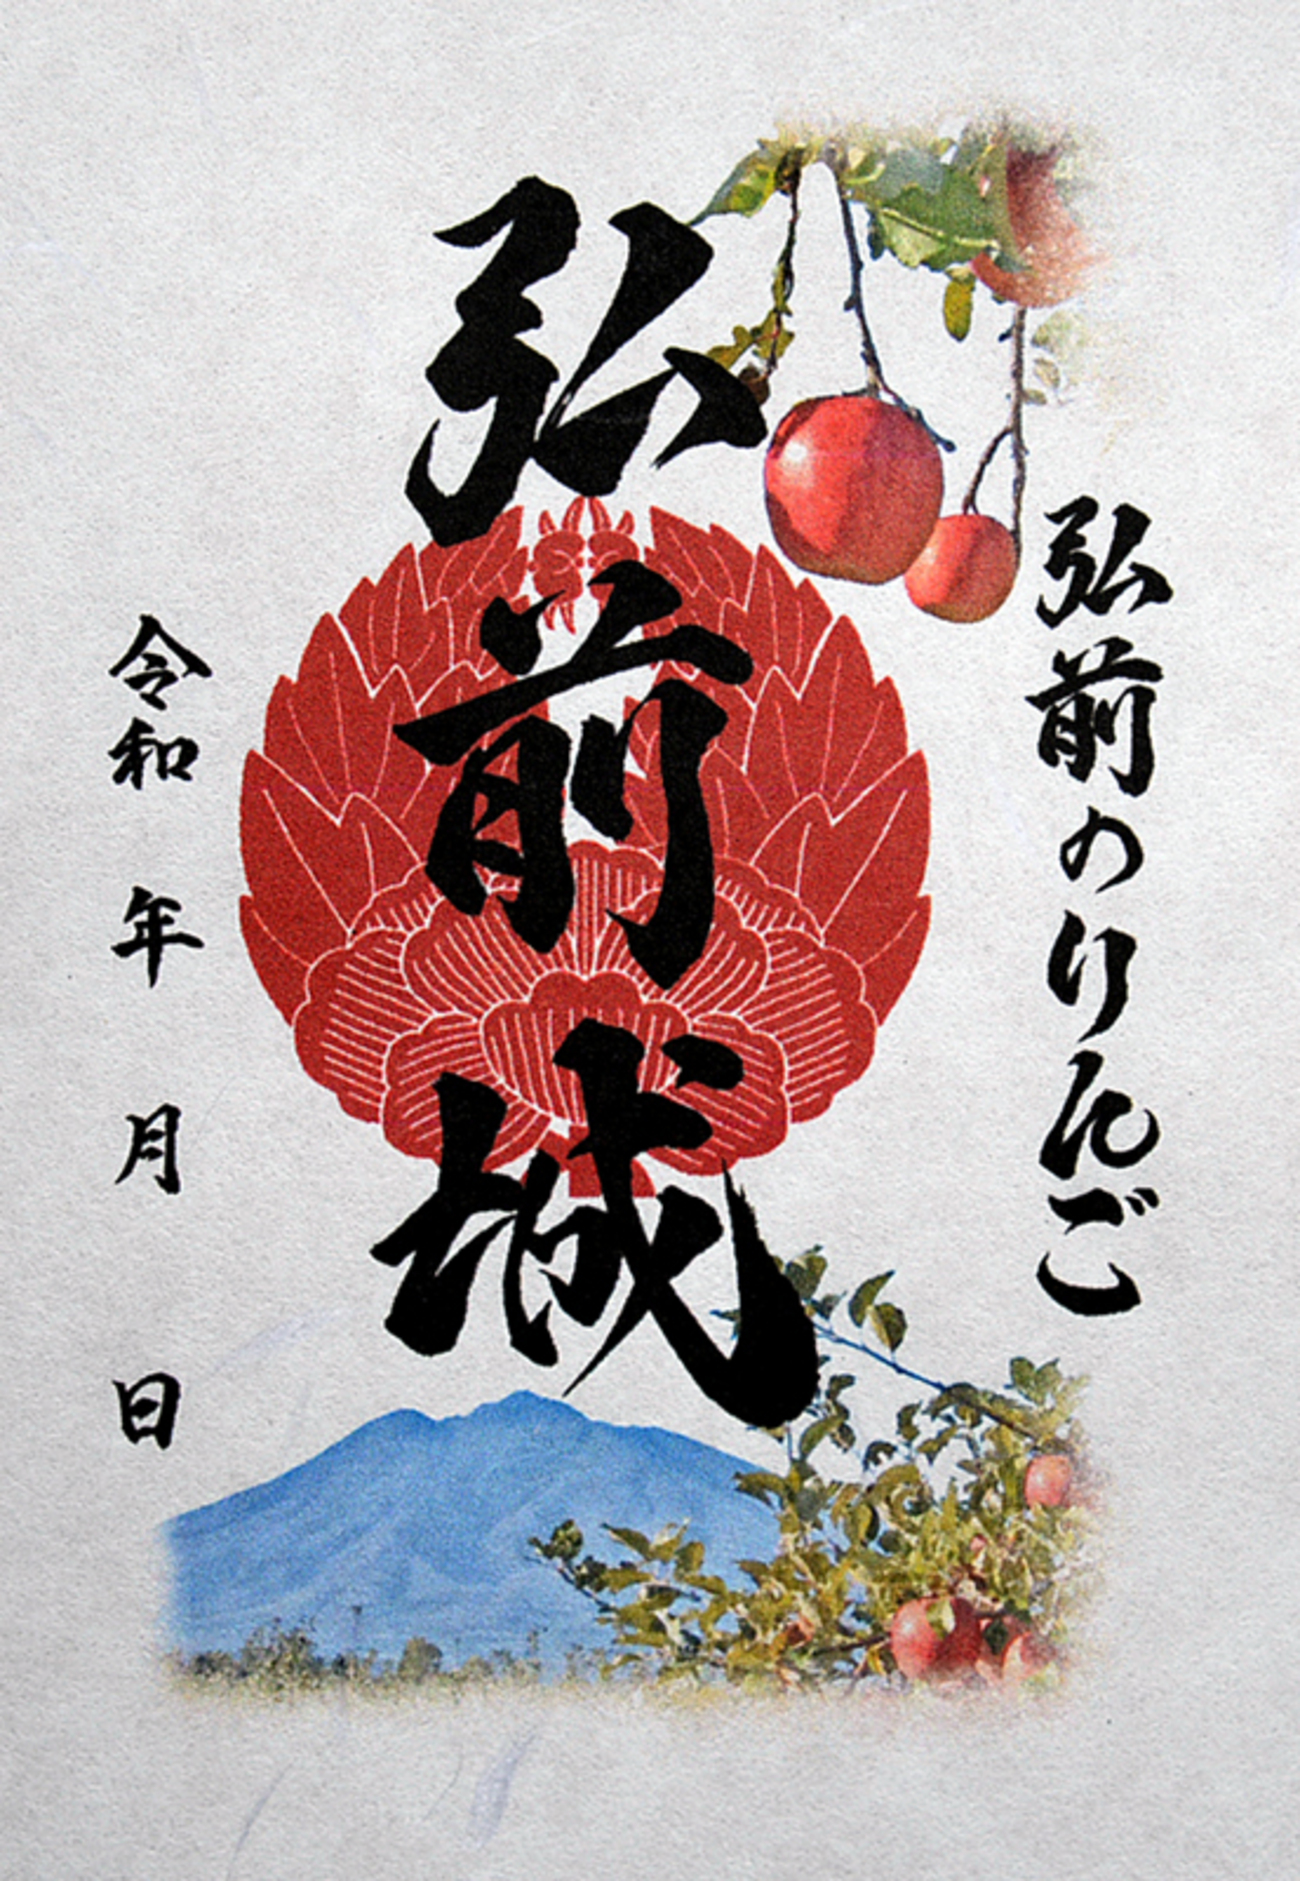 弘前のりんご
弘前城
令和 年 月 日